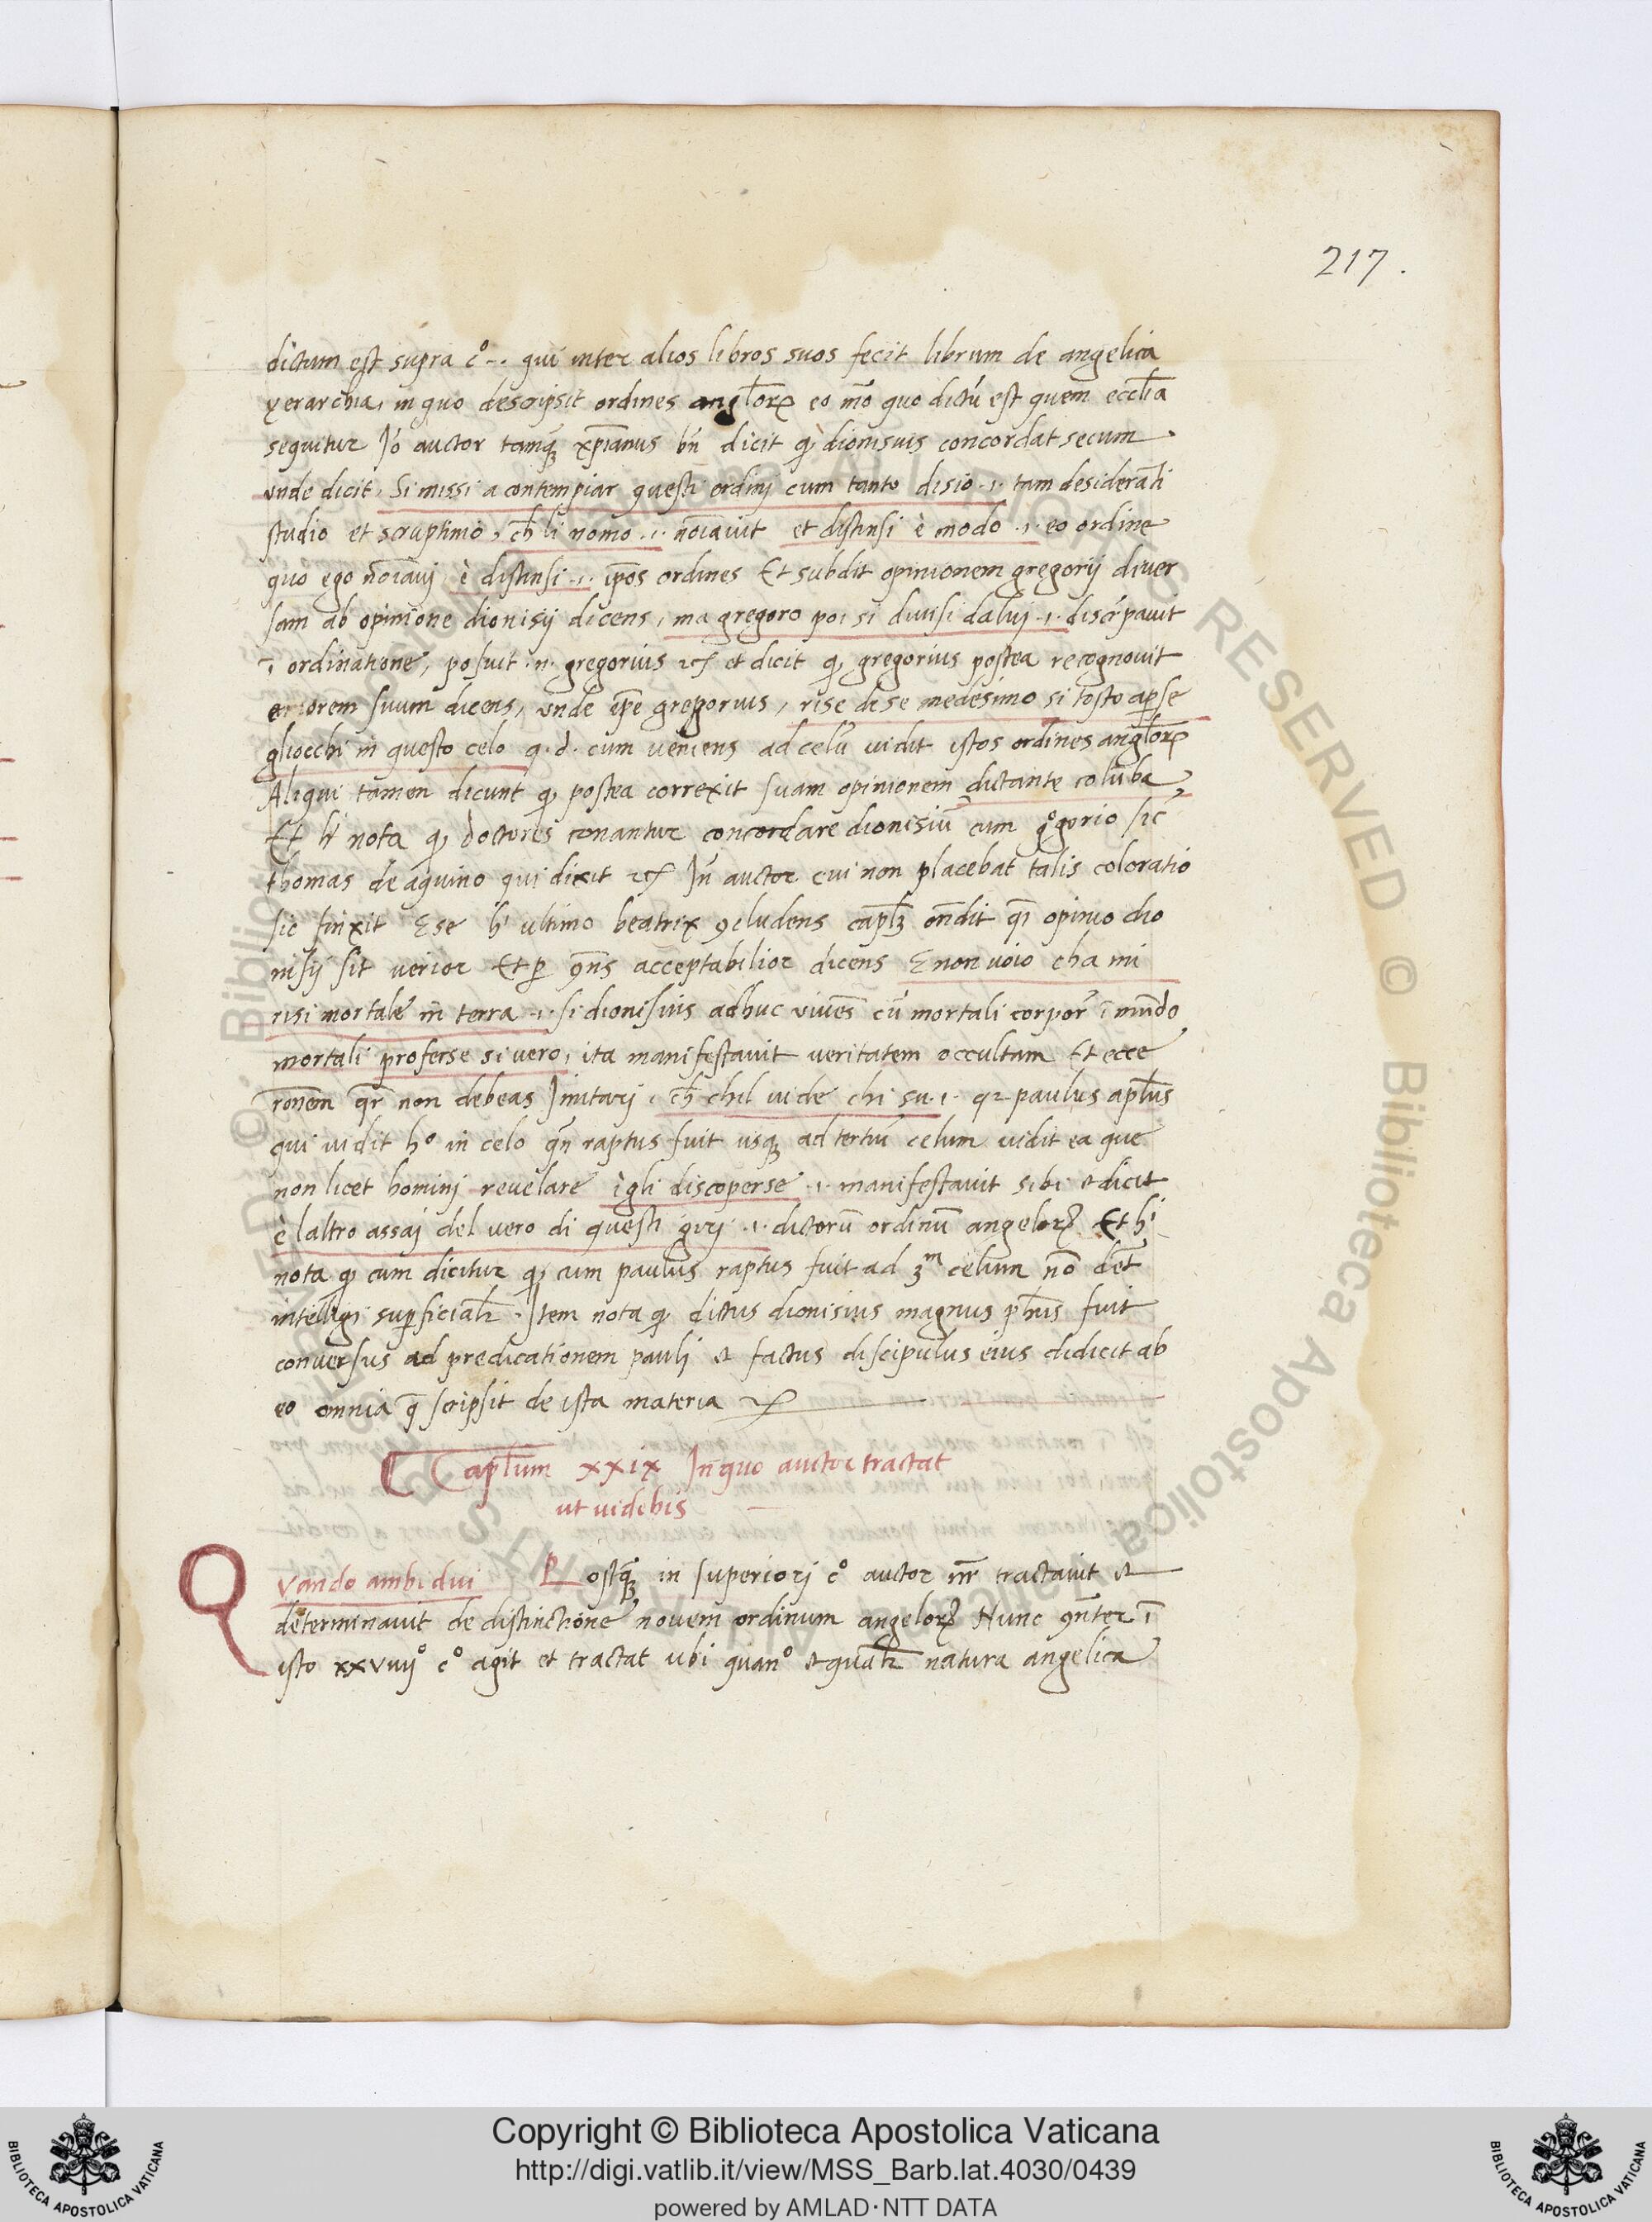 217.
dictum est supra c°.. qui inter alios libros suos fecit librum de angelica
yerarchia, in quo descripsit ordines anglorꝝ eo mō quo dictū est quem ecclīa
sequitur Iō auctor tamqꝫ xp̄ianus bn̄ dicit ꝙ dionisuis concordat secum
vnde dicit, Si missi a contempiar questi ordinj cum tanto disio .i. tam desiderāti
studio et scruptinio, ch̄ li nomo .i. noīauit et distinsi è modo .i. eo ordine
quo ego noīauj è distinsi .i. ip̄os ordines Et subdit opinionem gregorij diuer
sam ab opinione dionisij dicens, ma gregoro poi si diuisi da luj .i. discr̄pauit
ī ordinatione, posuit .n. gregorius ⁊cꝭ et dicit ꝙ gregorius postea recognouit
errorem suum dicens, vnde ip̄e gregorius, rise de se medesimo si tosto aperse
gliocchi in questo celo q.d. cum veniens ad celū uidit istos ordines anglorꝝ
Aliqui tamen dicunt ꝙ postea correxit suam opinionem dictante colūba
Et hⁱ nota ꝙ doctores conantur concordare dionisiū cum g°gorio sic̄
thomas de aquino qui dixit ⁊cꝭ In̄ auctor cui non placebat talis coloratio
sic finxit Ese hⁱ ultimo beatrix ꝯcludens capl̄ꝫ on̄dit qͥ opinio dio
nisij sit verior Et ꝑ ꝯn̄s acceptabilior dicens E non uoio cha mi
risi mortale in terra .i. si dionisius adhuc viuēs cū mortali corpor̄ ī mūdo
mortali proferse si vero, ita manifestauit veritatem occultam Et ecce
rōnem qr̄ non debeas Imitarj. ch̄ chil uide chi su .i. qꝛ paulus apl̄us
qui uidit h° in celo qn̄ raptus fuit usqꝫ ad tertiū celum uidit ea que
non licet hominj reuelare ìgli discoperse .i. manifestauit sibi ⁊ dicit
è laltro assaj del vero di questi girj .i. dictorū ordinū angelorꝝ Et hⁱ
nota ꝙ cum dicitur ꝙ cum paulus raptus fuit ad 3ᵐ celum nō det̄
intelligi suꝑficialr̄. Item nota ꝙ dictus dionisius magnus ph̄us fuit
conuersus ad predicationem paulj ⁊ factus discipulus eius didicit ab
eo omnia q̄ scripsit de ista materia ⁊cꝭ
Capl̄um xxix In quo auctor tractat
ut uidebis
Quando ambidui Postqꝫ in superiorj c° auctor nr̄ tractauit ⁊
determinauit de distinctione nouem ordinum angelorꝝ Nunc ꝯn̄ter ī
isto xxviiij° c° agit et tractat ubi quan° ⁊ qualr̄ natura angelica
Copyright © Biblioteca Apostolica Vaticana
http://digi.vatlib.it/view/MSS_Barb.lat.4030/0439
powered by AMLAD·NTT DATA
BIBLIOTECA APOSTOLICA VATICANA
BIBLIOTECA APOSTOLICA VATICANA